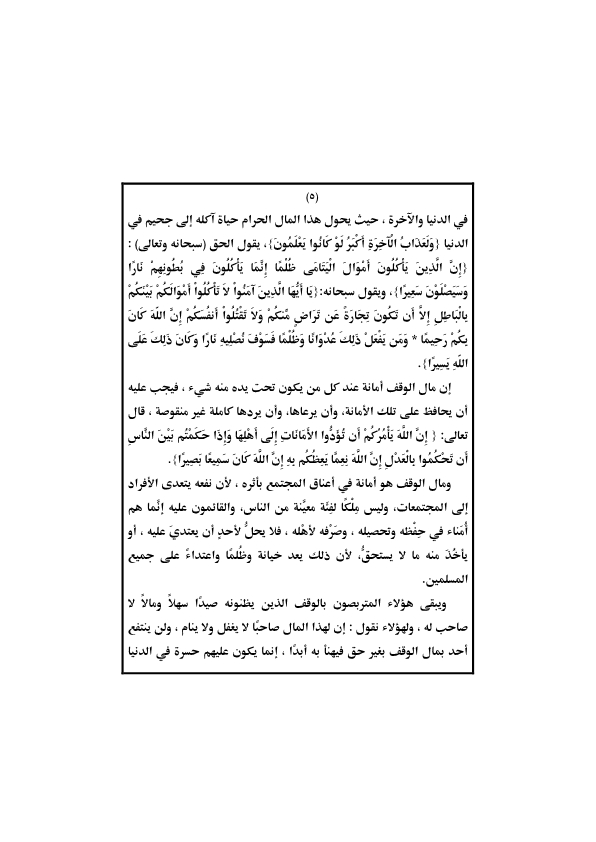 (٥)
في الدنيا والآخرة ، حيث يحول هذا المال الحرام حياة آكله إلى جحيم في
الدنيا {وَلَعَذَابُ الْآخِرَةِ أَكْبَرُ لَوْ كَانُوا يَعْلَمُونَ}، يقول الحق (سبحانه وتعالى) :
{إِنَّ الَّذِينَ يَأْكُلُونَ أَمْوَالَ الْيَتَامَى ظُلْمًا إِنَّمَا يَأْكُلُونَ فِي بُطُونِهِمْ نَارًا
وَسَيَصْلَوْنَ سَعِيرًا}، ويقول سبحانه:{يَا أَيُّهَا الَّذِينَ آمَنُواْ لاَ تَأْكُلُواْ أَمْوَالَكُمْ بَيْنَكُمْ
بِالْبَاطِلِ إِلاَّ أَن تَكُونَ تِجَارَةً عَن تَرَاضٍ مِّنكُمْ وَلاَ تَقْتُلُواْ أَنفُسَكُمْ إِنَّ اللّهَ كَانَ
بِكُمْ رَحِيمًا * وَمَن يَفْعَلْ ذَلِكَ عُدْوَانًا وَظُلْمًا فَسَوْفَ نُصْلِيهِ نَارًا وَكَانَ ذَلِكَ عَلَى
اللّهِ يَسِيرًا}.
إن مال الوقف أمانة عند كل من يكون تحت يده منه شيء ، فيجب عليه
أن يحافظ على تلك الأمانة، وأن يرعاها، وأن يردها كاملة غير منقوصة ، قال
تعالى: { إِنَّ اللَّهَ يَأْمُرُكُمْ أَن تُؤَدُّوا الأَمَانَاتِ إِلَى أَهْلِهَا وَإِذَا حَكَمْتُم بَيْنَ النَّاسِ
أَن تَحْكُمُوا بِالْعَدْلِ إِنَّ اللَّهَ نِعِمَّا يَعِظُكُم بِهِ إِنَّ اللَّهَ كَانَ سَمِيعًا بَصِيرًا}.
ومال الوقف هو أمانة في أعناق المجتمع بأثره ، لأن نفعه يتعدى الأفراد
إلى المجتمعات، وليس مِلْكًا لفِئَة معيَّنة من الناس، والقائمون عليه إنَّما هم
أُمَناء في حِفْظه وتحصيله ، وصَرْفه لأهْله ، فلا يحلُّ لأحدٍ أن يعتديَ عليه ، أو
يأخُذ منه ما لا يستحقُّ، لأن ذلك يعد خيانة وظُلمًا واعتداءً على جميع
المسلمين.
ويبقى هؤلاء المتربصون بالوقف الذين يظنونه صيدًا سهلاً ومالاً لا
صاحب له ، ولهؤلاء نقول : إن لهذا المال صاحبًا لا يغفل ولا ينام ، ولن ينتفع
أحد بمال الوقف بغير حق فيهنأ به أبدًا ، إنما يكون عليهم حسرة في الدنيا